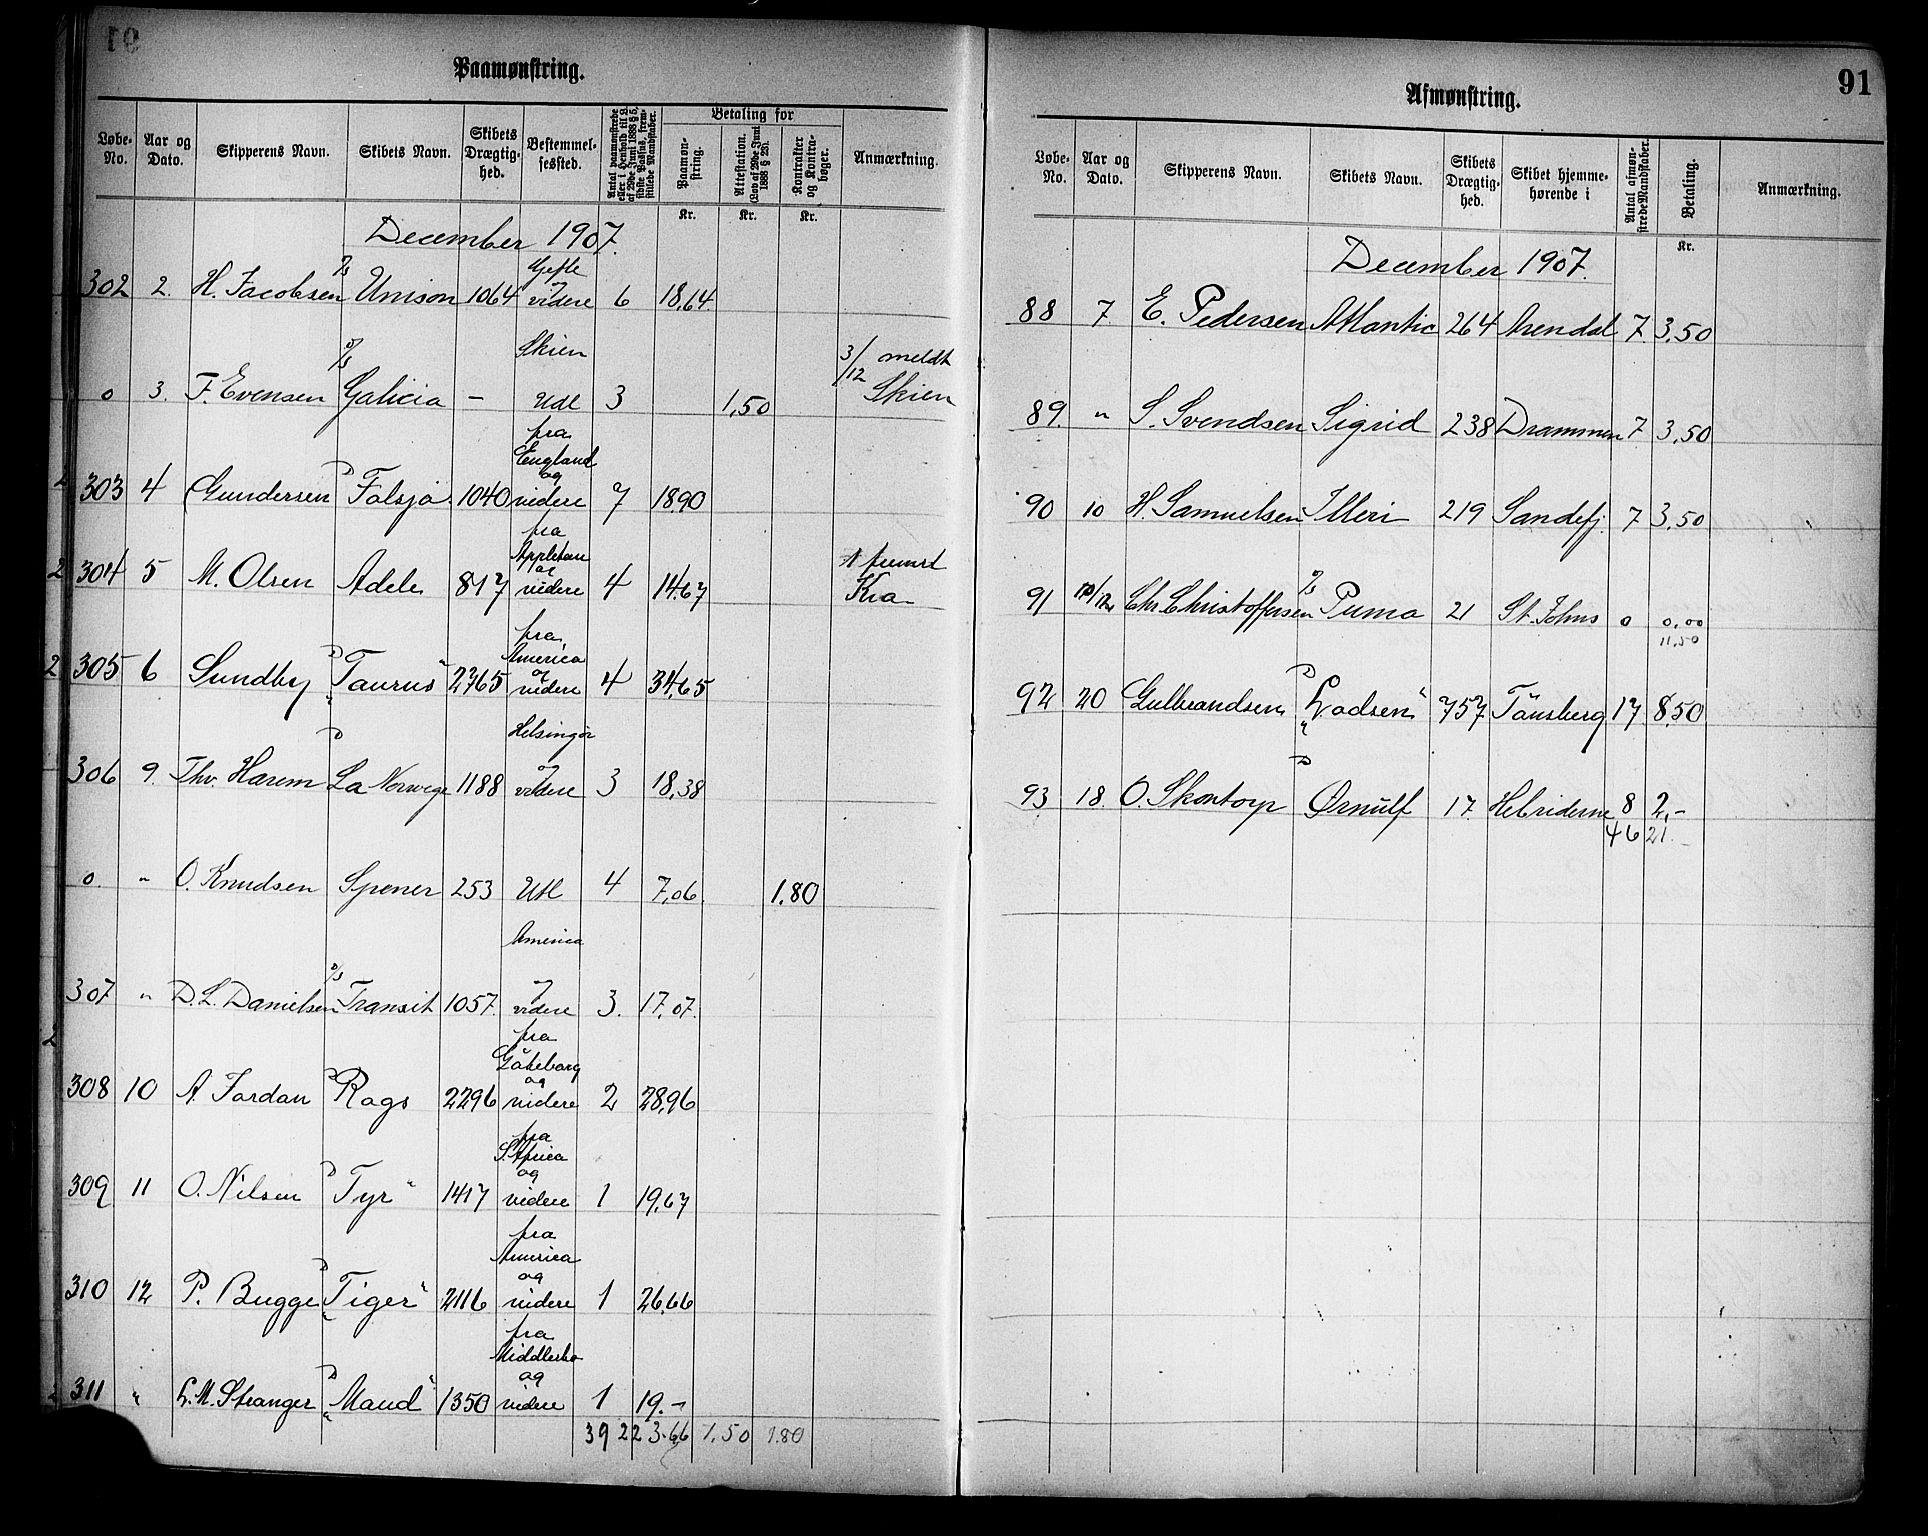 Paamønstring.
Løbe-No. Aar og Dato. Skipperens Navn. Skibets Navn. Skibets Drægtig-hed. Bestemmel-sessted. Antal paamønstrede eller i Henhold til L. af 29de Juni 1888 § 5, sidste Passus, frem-stillede Mandskaber. Betaling for Paamøn-string. Attestation. (Lov af 29de Juni 1888 § 23). Kontrakter og Kontra-bøger. Anmærkning.
Kr. Kr. Kr.
December 1907.
302 2. H. Jacobsen D/s Unison 1064 Gefle og videre 6 18,64
o 3. F. Evensen D/s Galicia — Skien Udl 3 1,50 3/12 meldt Skien
303 4 Gundersen D Falsjo 1040 fra England og videre 7 18,90
304 5 M. Olsen Adele 817 fra og videre 4 14,67 Kra
305 6 Sundby D „Taurus“ 2765 fra America og videre 4 34,65
306 9. Thv. Harem D La Norwege 1188 Helsingør og videre 3 18,38
o. " O. Knudsen Spener 253 Utl 4 7,06 1.80
307 " D. L. Danielsen D/s Transit 1057 America og videre 3. 17,07
308 10 A. Jordan D Rags 2296 fra Göteborg og videre 2 28,96
309 11 O. Nilsen D Tyr“ 1417 fra S. Africa og videre 1 19,67
310 12 P. Bugge D „Tiger“ 2116 fra America og videre 1 26,66
311 " L. M. Stranger D „Maud“ 1350 fra Middlesbo og videre 1 19.-
39 223.66 1.50 1.80
91
Afmønstring.
Løbe-No. Aar og Dato. Skipperens Navn. Skibets Navn. Skibets Drægtig-hed. Skibet hjemme-hørende i Antal afmøn-strede Mandskaber. Betaling. Anmærkning.
Kr.
December 1907.
88 7 E. Pedersen Atlantic 264 Arendal 7 3.50
89. " S. Svendsen Sigrid 238 Drammen 7 3.50
90 10 H. Samuelsen Illeri 219 Sandefj. 7 3.50
91 12/12 Chr. Christoffersen D/s Puma 21 St. Johns o 0,00
11,50
92 20 Gulbrandsen D „Ladsen“ 757 Tönsberg 17 8.50
93 18 O. Skontorp D Ørnulf 17 Hebriderne 8 2,-
46 21.-